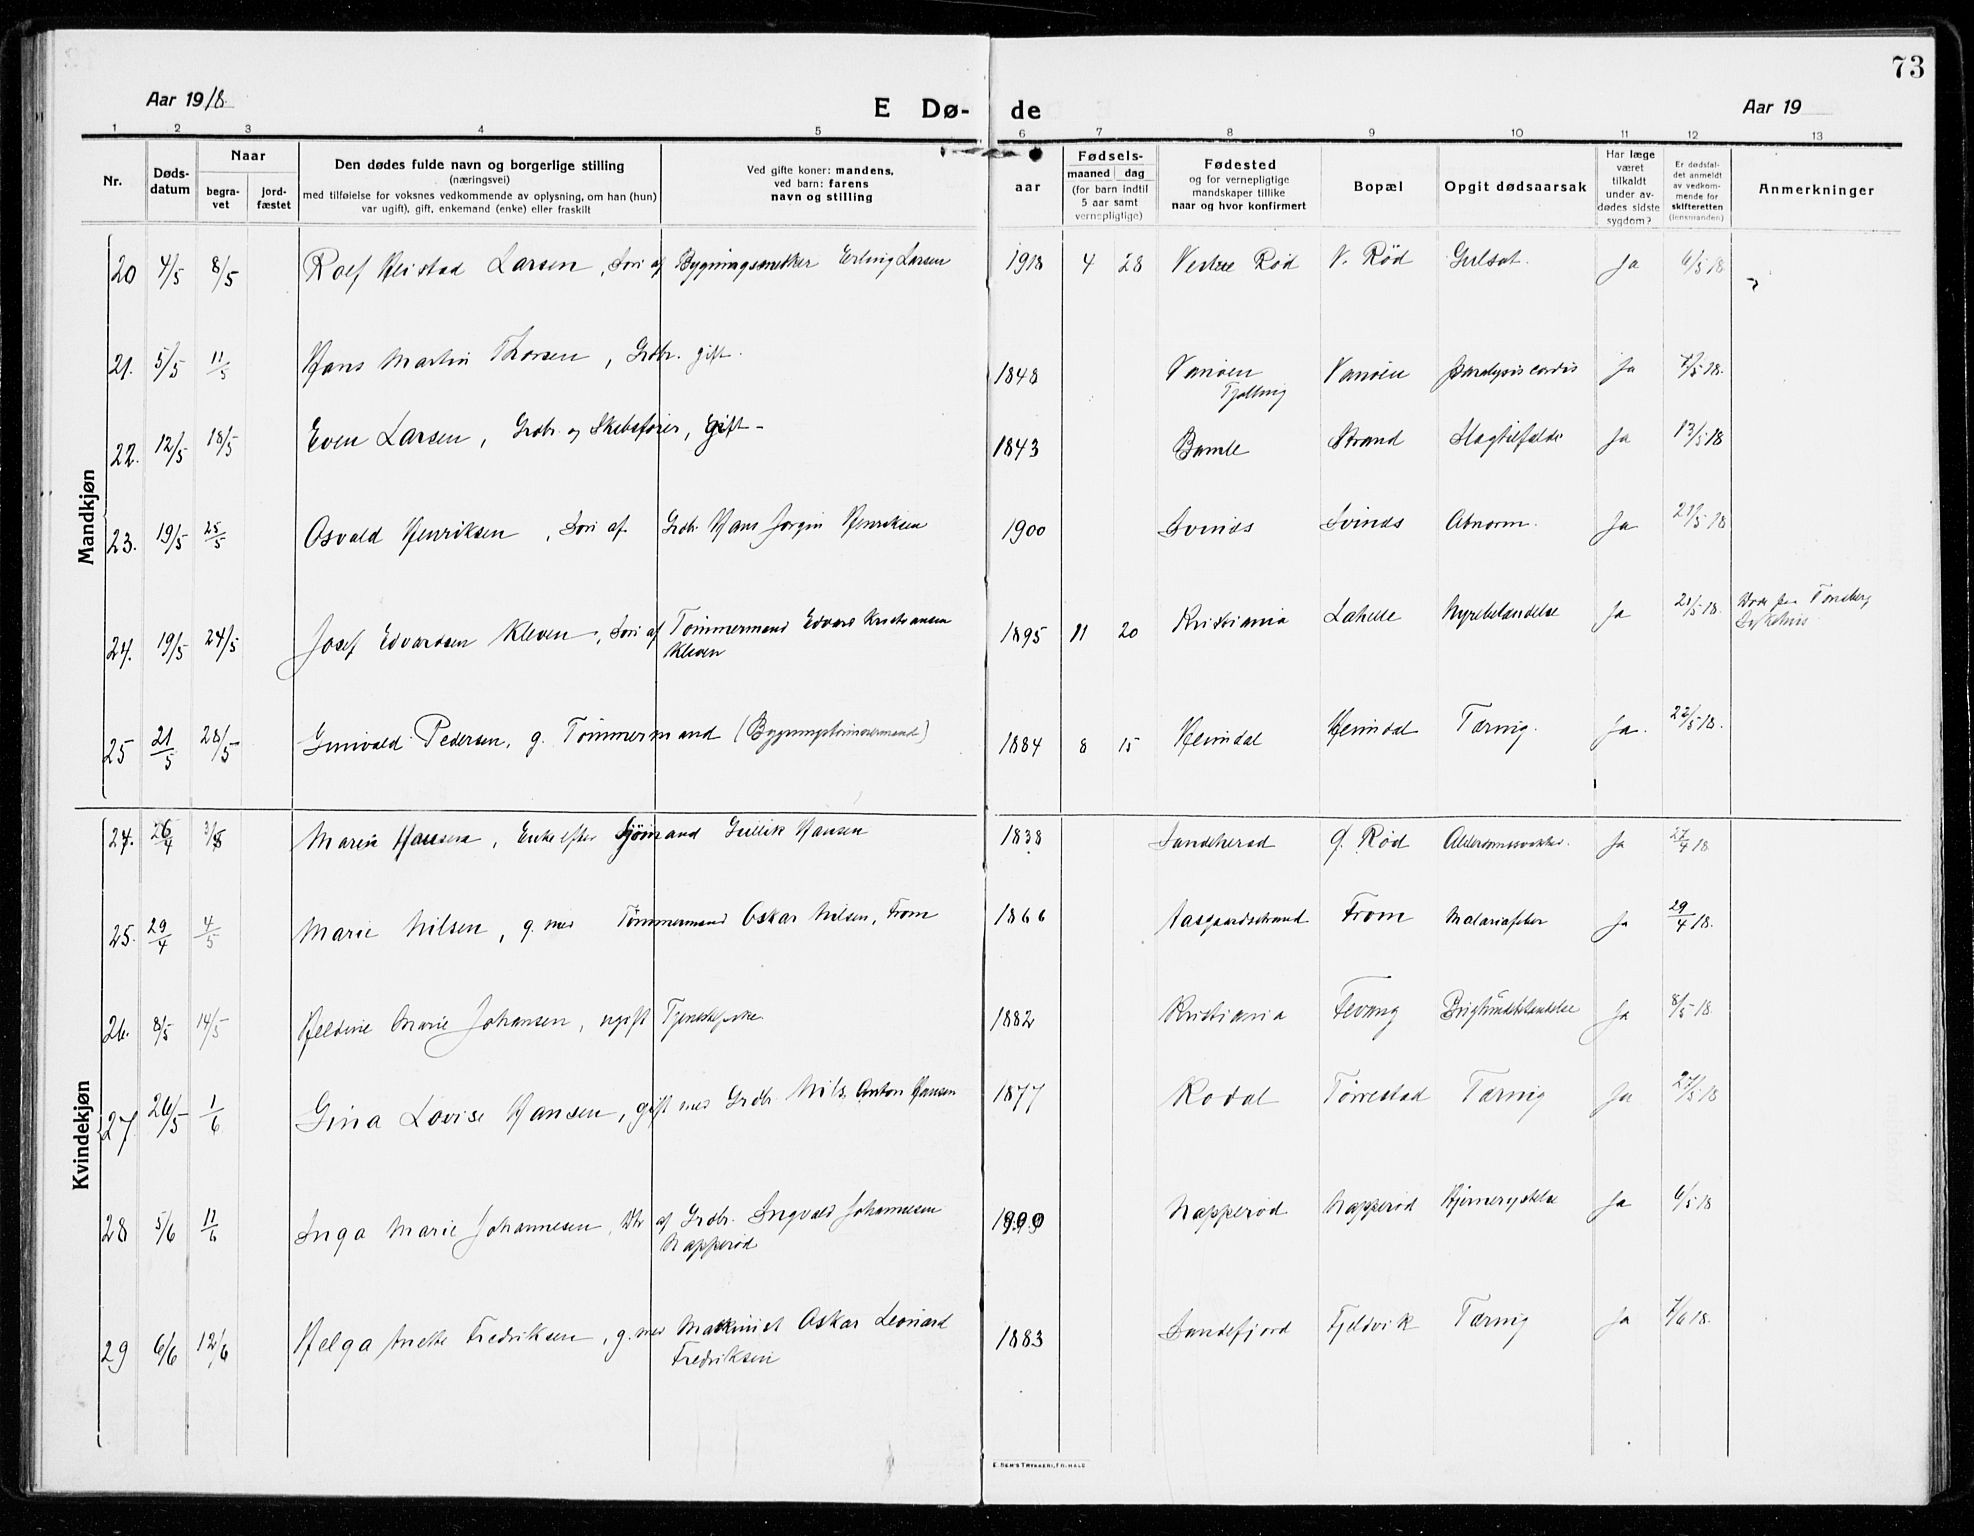 73
Aar 1918.
E Dø-
de
Aar 19
1 2 3 4 5 6 7 8 9 10 11 12 13
Nr.
Døds-
datum
Naar
begra-
vet
jord-
fæstet
Den dødes fulde navn og borgerlige stilling
(næringsvei)
med tilføielse for voksnes vedkommende av oplysning, om han (hun)
var ugift), gift, enkemand (enke) eller fraskilt
Ved gifte koner: mandens,
ved barn: farens
navn og stilling
aar
Fødsels-
maaned dag
(for barn indtil
5 aar samt
vernepligtige)
Fødested
og for vernepligtige
mandskaper tillike
naar og hvor konfirmert
Bopæl
Opgit dødsaarsak
Har læge
været
tilkaldt
under av-
dødes sidste
sygdom?
Er dødsfal-
det anmeldt
av vedkom-
mende for
skifteretten
(lensmanden)
Anmerkninger
Mandkjøn
20 4/5 8/5 Rolf Larsen, Søn af Bygningssnekker Erling Larsen 1918 4 28 Vestre Rød V. Rød Gulsot. Ja 6/5 18
21. 5/5 11/5 Hans Martin Thorsen, Grdbr. gift. 1848 Tjølling paralysis cordis Ja 7/5 18.
22. 12/5 18/5 Even Larsen, Grdbr. og Skibsfører, Gift - 1843 Bamle Strand Slagtilfælde Ja 13/5 18
23. 19/5 25/5 Osvald Henriksen, Søn af Grdbr. Hans Jørgin Henriksen 1900 Svinds Abnorm. Ja 21/5 18
24. 19/5 24/5 Josef Edvardsen Kleven, Søn af Tømmermand Edvard Kristiansen
Kleven 1895 11 20 Kristiania Nyrebetændelse Ja 21/5 18. Tønsberg
Sykehus
25 21/5 28/5 Gunvald Pedersen, g. Tømmermand (Bygningstømmermand) 1884 8 15 Heimdal Heimdal Tæring. Ja. 22/5 18.
Kvindekjøn
24. 26/4 3/5 Maren Hansen, Enke efter Sjømand Gullik Hansen 1838 Sandeherad Ø. Rød Ja 27/4 18
25. 29/4 4/5 Marie Nilsen, g. med Tømmermand Oskar Nilsen, From 1866 Aasgaardstrand From Malariafeber Ja 29/4 18.
26. 8/5 14/5 Marie Johansen, ugift Tjenestepike 1882 Kristiania Fevang Brysthindebetændelse Ja 8/5 18.
27 26/5 1/6 Gina Lovise Hansen, gift med Grdbr. Nils Anton Hansen 1877 Rødal Tørrestad Tæring Ja 27/5 18
28 5/6 11/6 Inga Marie Johannesen, Dtr af Grdbr. Ingvald Johannesen
Napperød 1900 Napperød Napperød Hjernerystelse Ja 6/5 18
29 6/6 12/6 Helga Anette Fredriksen, g. med Maskinist Oskar Leonard
Fredriksen 1883 Sandefjord Fjeldvik Tæring Ja 7/6 18.
E. SEM'S TRYKKERI, FR. HALD